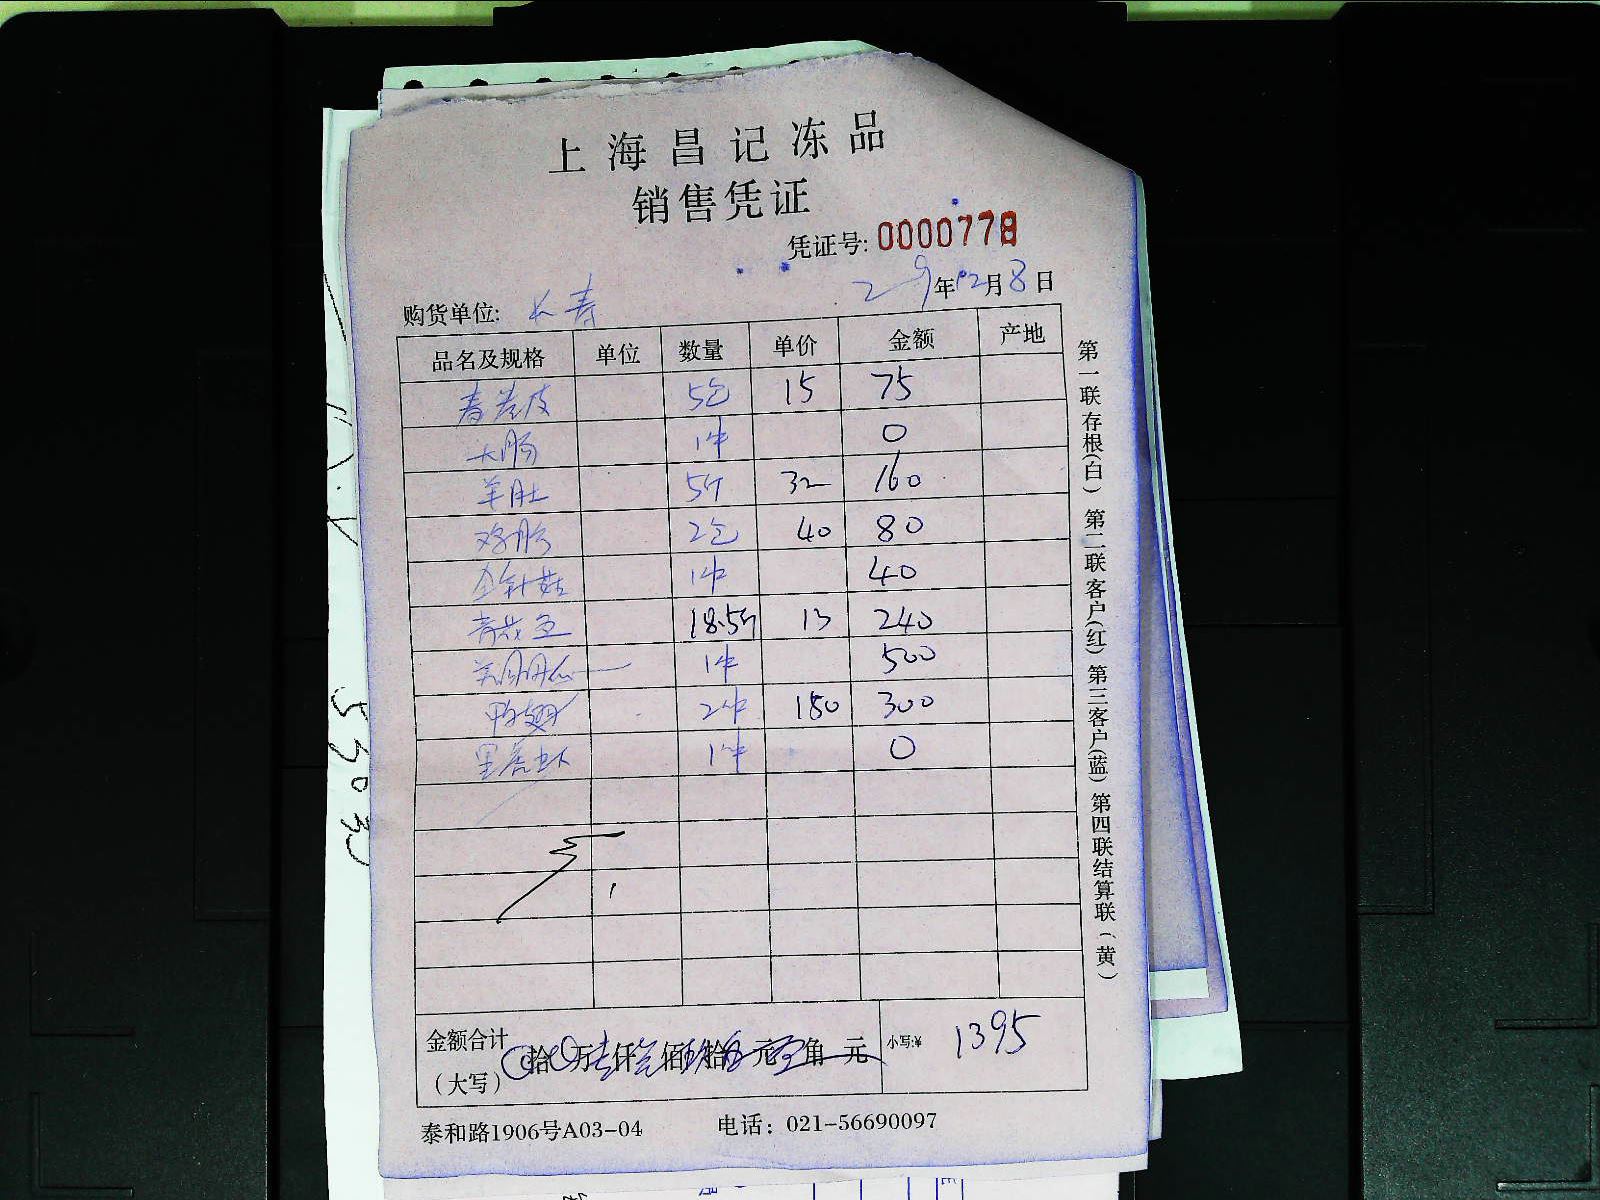 上海昌记冻品
销售凭证
凭证号: 0000778
29年12月8日
购货单位: 长寿
品名及规格 单位 数量 单价 金额 产地
春卷皮 5包 15 75
大肠 1件 0
羊肚 5斤 32 160
鸡胗 2包 40 80
金针菇 1件 40
青花鱼 18.5斤 13 240
1件 500
鸭翅 2件 150 300
黑虎虾 1件 0
金额合计
(大写) 拾 万 仟 佰 拾 元 角 元 小写:¥ 1395
泰和路1906号A03-04 电话: 021-56690097
第一联存根(白) 第二联客户(红) 第三客户(蓝) 第四联结算联(黄)